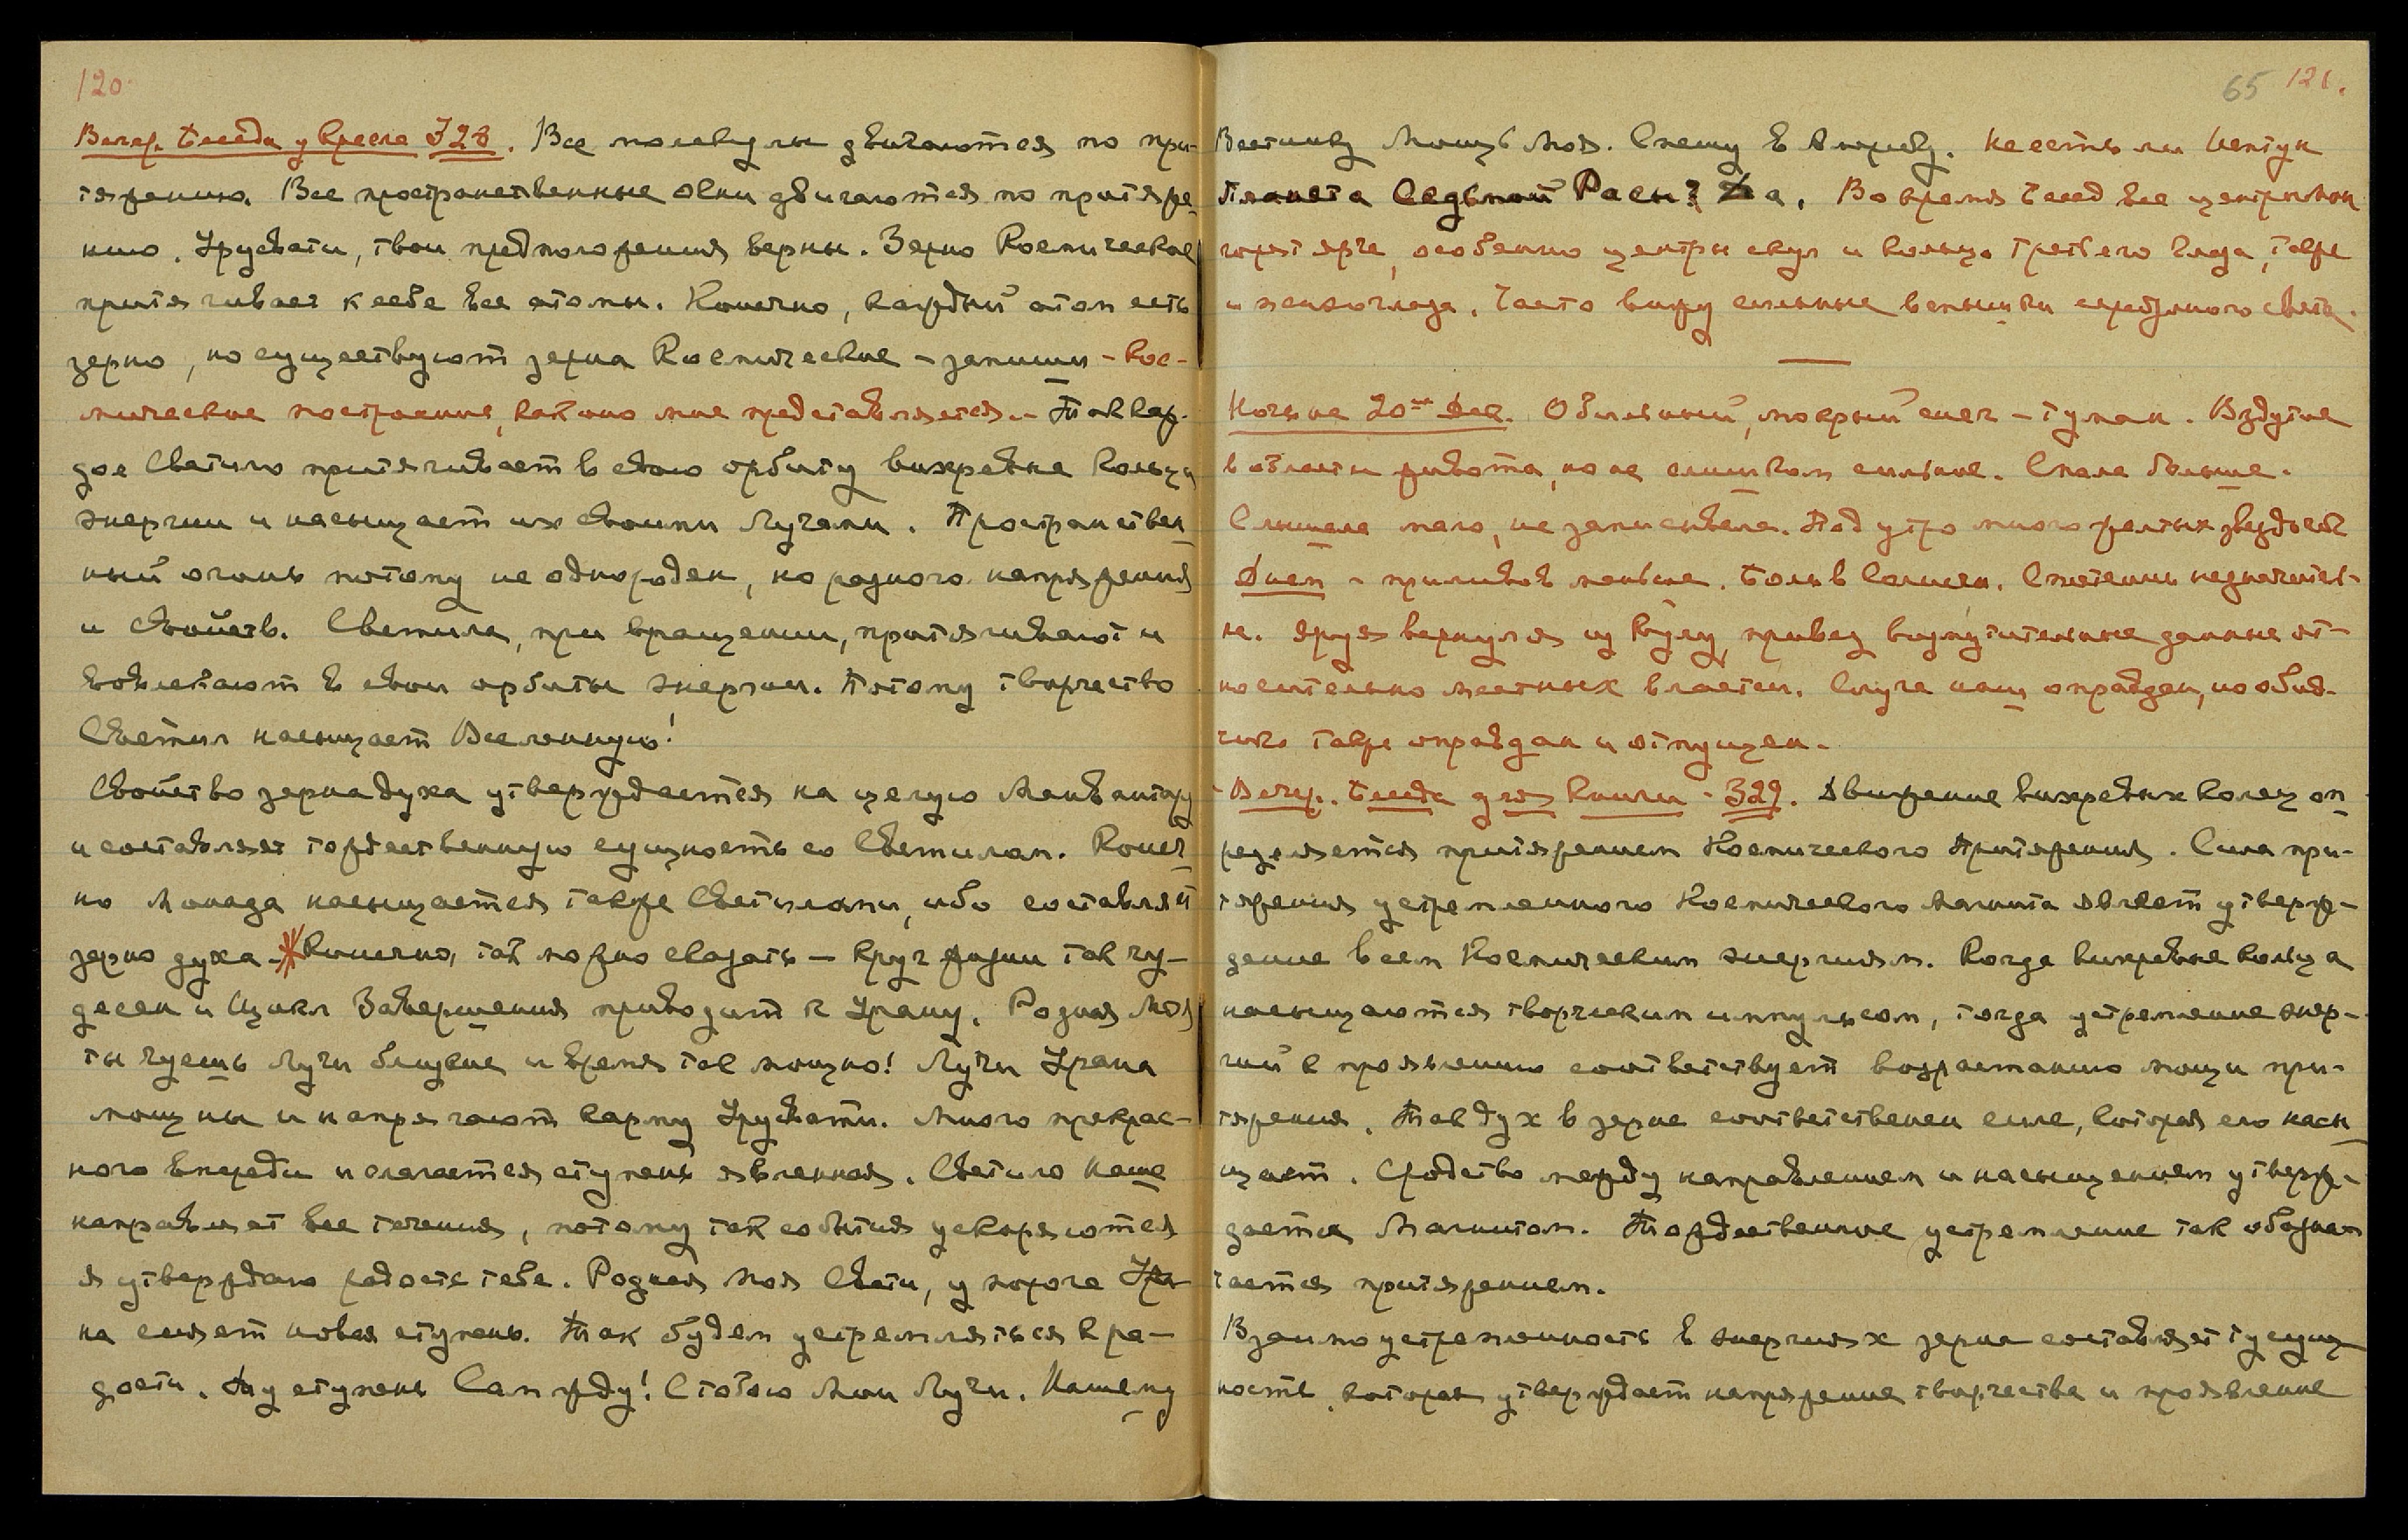 120.
Вечер. Беседа у кресла 328. Все молекулы двигаются по при-
тяжению. Все пространственные огни двигаются по притяже-
нию. Урусвати, твои предположения верны. Зерно Космическое
притягивает к себе все атомы. Конечно, каждый атом есть
зерно, но существуют зерна Космические – запиши – Кос-
мические построения, как оно мне представляется. – Так каж-
дое Светило притягивает в свою орбиту вихревые кольца
энергии и насыщает их своими Лучами. Пространствен
ный огонь потому не однороден, но разного напряжения
и свойств. Светила, при вращении, притягивают и
вовлекают в свои орбиты энергии. Потому творчество
Светил насыщает Вселенную!
Свойство зерна духа утверждается на целую Манвантару
и составляет тождественную сущность со Светилом. Конеч
но Монада насыщается также Светилами, ибо составляет
зерно духа. – Конечно, так можно сказать – круг жизни так чу-
десен и Цикл Завершения приводит к Урану. Родная Моя
ты чуешь Лучи близкие и время так мощно! Лучи Урана
мощны и напрягают карму Урусвати. Много прекрас-
ного впереди и слагается ступень явленная. Светило наше
направляет все течения, потому так события ускоряются
я утверждаю радость тебе. Родная Моя Свати, у порога Ура-
на сияет новая ступень. Так будем устремляться к ра-
дости. Ту ступень Сам жду! С тобою Мои Лучи. Нашему
65 121.
Вестнику Мощь Моя. Спешу в Америку. Не есть ли Нептун
Планета Седьмой Расы? Да. Во время Бесед все центры мои
горят ярче, особенно центры скул и кольцо третьего глаза, также
и малого глаза. Часто вижу сильные вспышки серебряного света.
Ночь на 20ое Дек. Обильный, мокрый снег – туман. Вздутие
в области живота, но не слишком сильное. Спала больше.
Слышала мало, не записывала. Под утро много желтых звездочек
Днем – приливов меньше. Боль в Солнечн. Сплетении незначитель-
на. Яруя вернулся из Кулу, привез возмутительные данные от-
носительно местных властей. Слуга наш оправдан, но обид-
чик также оправдан и отпущен.
Вечер. Беседа для Книги – 329. Движение вихревых колец оп
ределяется притяжением Космического Притяжения. Сила при-
тяжения устремленного Космического Магнита являет утверж-
дение всем Космическим энергиям. Когда вихревые кольца
насыщаются творческим импульсом, тогда устремление энер-
гий к проявлению соответствует возрастанию мощи при-
тяжения. Так дух в зерне соответственен силе, которая его насы
щает. Сродство между направлением и насыщением утверж-
дается Магнитом. Тождественное устремление так обозна-
чается притяжением.
Взаимоустремленность в энергиях зерна составляет ту сущ
ность, которая утверждает напряжение творчества и проявление